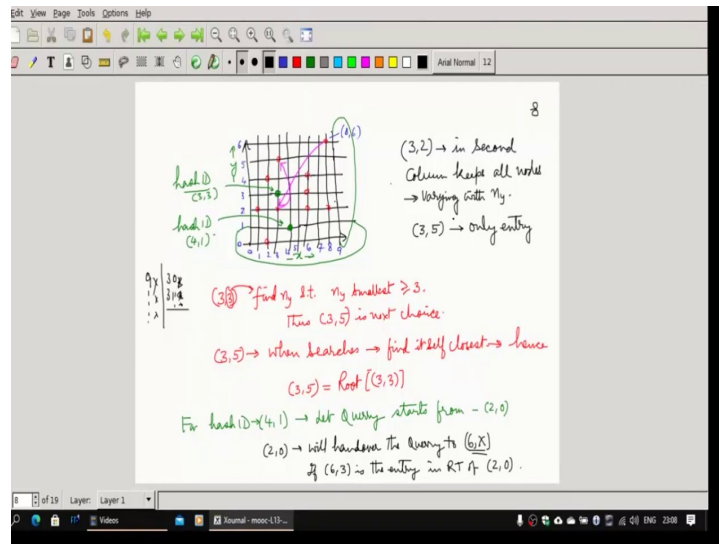 Edit View Page Tools Options Help
Arial Normal 12
8
(8,6)
6
5
4
3
2
1
0
y
0 1 2 3 4 5 6 7 8 9
x →
hash ID
(3,3)
hash ID
(4,1)
(3,2) → in second
Column keeps all nodes
→ varying with ny.
(3,5) → only entry
(3,3) find ny s.t. ny smallest ≥ 3.
Thus (3,5) is next choice.
(3,5) → when searches → find itself closest → hence
(3,5) = Root [(3,3)]
For hash ID → (4,1) → let Query starts from - (2,0)
(2,0) → will handover the Query to (6,X)
If (6,3) is the entry in RT of (2,0).
8 of 19 Layer: Layer 1
Videos
Xournal - mooc-L13-...
ENG 23:08